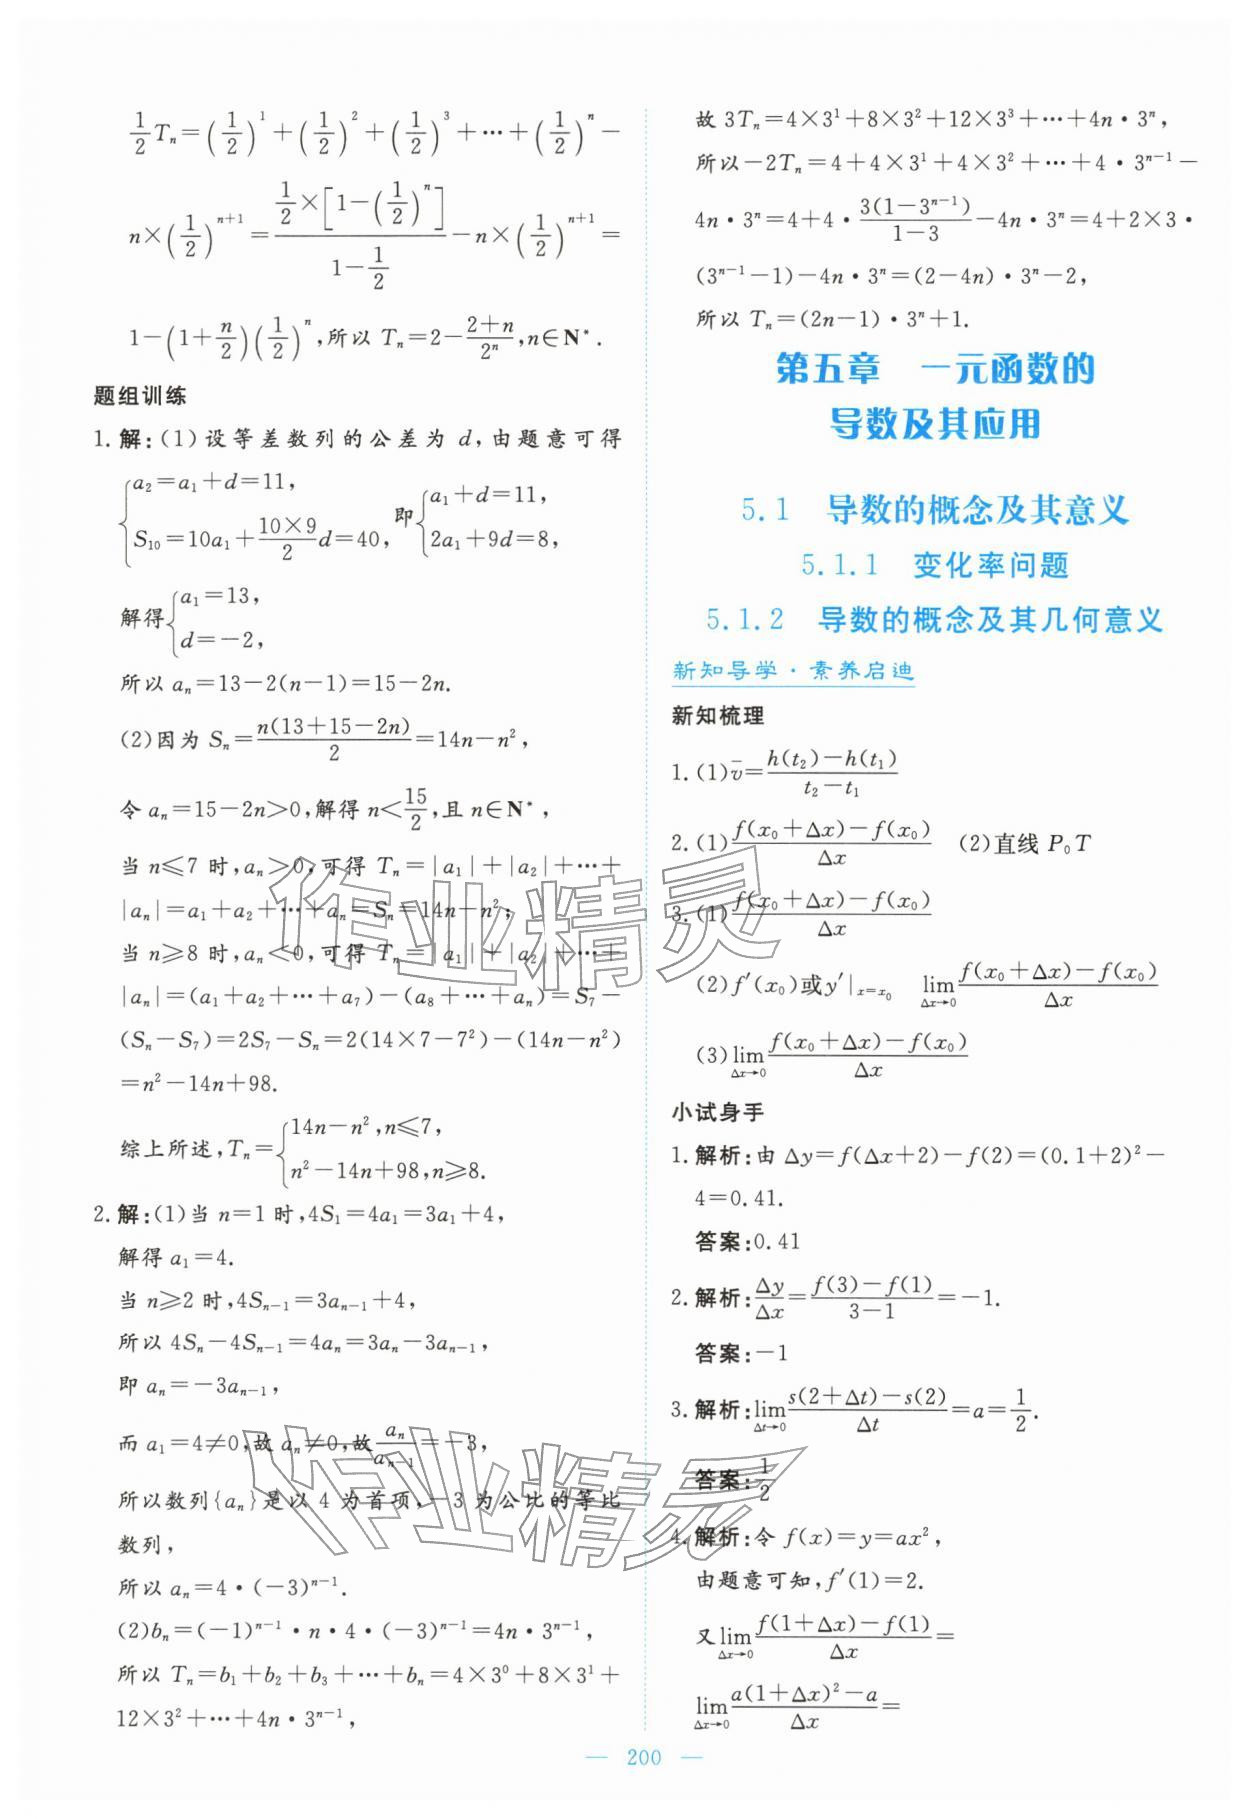 1/2 Tₙ=(1/2)¹+(1/2)²+(1/2)³+⋯+(1/2)ⁿ−
n×(1/2)ⁿ⁺¹=(1/2×[1−(1/2)ⁿ])/(1−1/2)−n×(1/2)ⁿ⁺¹=
1−(1+n/2)(1/2)ⁿ,所以 Tₙ=2−(2+n)/2ⁿ,n∈N*.
题组训练
1.解:(1)设等差数列的公差为 d,由题意可得
{a₂=a₁+d=11, S₁₀=10a₁+(10×9)/2 d=40, 即{a₁+d=11, 2a₁+9d=8,
解得{a₁=13, d=−2,
所以 aₙ=13−2(n−1)=15−2n.
(2)因为 Sₙ=n(13+15−2n)/2=14n−n²,
令 aₙ=15−2n>0,解得 n<15/2,且 n∈N*,
当 n≤7 时,aₙ>0,可得 Tₙ=|a₁|+|a₂|+⋯+
|aₙ|=a₁+a₂+⋯+aₙ=Sₙ=14n−n²;
当 n≥8 时,aₙ<0,可得 Tₙ=|a₁|+|a₂|+⋯+
|aₙ|=(a₁+a₂+⋯+a₇)−(a₈+⋯+aₙ)=S₇−
(Sₙ−S₇)=2S₇−Sₙ=2(14×7−7²)−(14n−n²)
=n²−14n+98.
综上所述,Tₙ={14n−n²,n≤7, n²−14n+98,n≥8.
2.解:(1)当 n=1 时,4S₁=4a₁=3a₁+4,
解得 a₁=4.
当 n≥2 时,4Sₙ₋₁=3aₙ₋₁+4,
所以 4Sₙ−4Sₙ₋₁=4aₙ=3aₙ−3aₙ₋₁,
即 aₙ=−3aₙ₋₁,
而 a₁=4≠0,故 aₙ≠0,故 aₙ/aₙ₋₁=−3,
所以数列{aₙ}是以 4 为首项,−3 为公比的等比
数列,
所以 aₙ=4·(−3)ⁿ⁻¹.
(2)bₙ=(−1)ⁿ⁻¹·n·4·(−3)ⁿ⁻¹=4n·3ⁿ⁻¹,
所以 Tₙ=b₁+b₂+b₃+⋯+bₙ=4×3⁰+8×3¹+
12×3²+⋯+4n·3ⁿ⁻¹,
故 3Tₙ=4×3¹+8×3²+12×3³+⋯+4n·3ⁿ,
所以−2Tₙ=4+4×3¹+4×3²+⋯+4·3ⁿ⁻¹−
4n·3ⁿ=4+4·3(1−3ⁿ⁻¹)/(1−3)−4n·3ⁿ=4+2×3·
(3ⁿ⁻¹−1)−4n·3ⁿ=(2−4n)·3ⁿ−2,
所以 Tₙ=(2n−1)·3ⁿ+1.
第五章 一元函数的
导数及其应用
5.1 导数的概念及其意义
5.1.1 变化率问题
5.1.2 导数的概念及其几何意义
新知导学·素养启迪
新知梳理
1.(1)v̄=(h(t₂)−h(t₁))/(t₂−t₁)
2.(1)(f(x₀+Δx)−f(x₀))/Δx (2)直线 P₀T
3.(1)(f(x₀+Δx)−f(x₀))/Δx
(2)f′(x₀)或y′|ₓ₌ₓ₀ lim Δx→0 (f(x₀+Δx)−f(x₀))/Δx
(3)lim Δx→0 (f(x₀+Δx)−f(x₀))/Δx
小试身手
1.解析:由 Δy=f(Δx+2)−f(2)=(0.1+2)²−
4=0.41.
答案:0.41
2.解析:Δy/Δx=(f(3)−f(1))/(3−1)=−1.
答案:−1
3.解析:lim Δt→0 (s(2+Δt)−s(2))/Δt=a=1/2.
答案:1/2
4.解析:令 f(x)=y=ax²,
由题意可知,f′(1)=2.
又lim Δx→0 (f(1+Δx)−f(1))/Δx=
lim Δx→0 (a(1+Δx)²−a)/Δx=
— 200 —
作业精灵
作业精灵